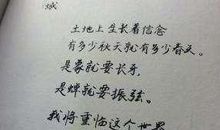 城
土地上生长着信念
有多少秋天就有多少春天。
是象就要长牙，
是蝉就要振弦。
我将重临这个世界